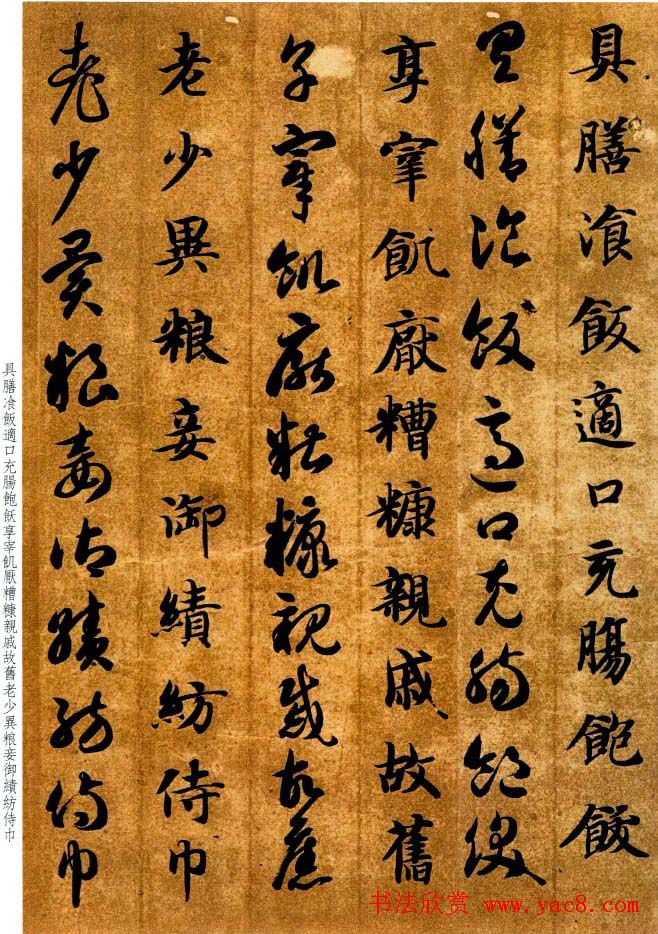 具膳湌飯適口充腸飽飫
具膳湌飯適口充腸飽飫
享宰飢厭糟糠親戚故舊
享宰飢厭糟糠親戚故舊
老少異粮妾御績紡侍巾
老少異粮妾御績紡侍巾
具膳飡飯適口充腸飽飫享宰飢厭糟糠親戚故舊老少異粮妾御績紡侍巾
书法欣赏 www.yac8.com